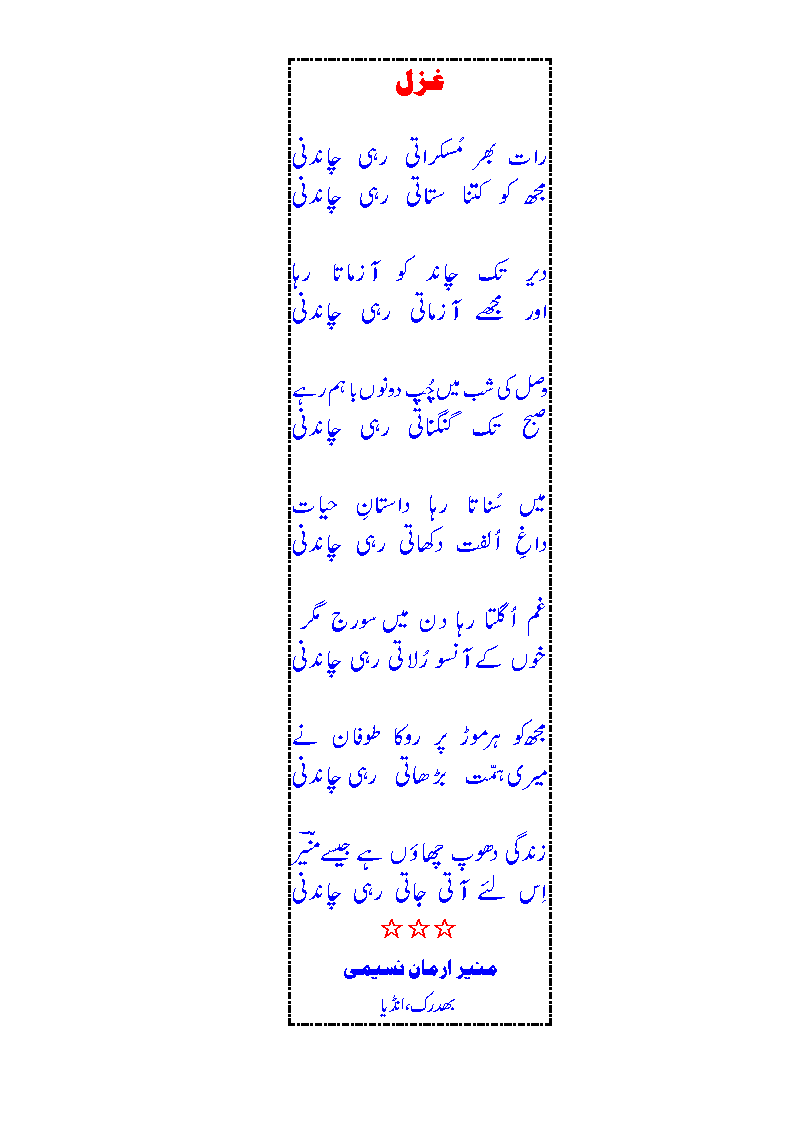 غزل
رات بھر مُسکراتی رہی چاندنی
مجھ کو کتنا ستاتی رہی چاندنی
دیر تک چاند کو آزماتا رہا
اور مجھے آزماتی رہی چاندنی
وصل کی شب میں چُپ دونوں باہم رہے
صبح تک گنگناتی رہی چاندنی
میں سُناتا رہا داستانِ حیات
داغِ اُلفت دکھاتی رہی چاندنی
غم اُگلتا رہا دن میں سورج مگر
خوں کے آنسو رُلاتی رہی چاندنی
مجھ کو ہر موڑ پر روکا طوفان نے
میری ہمّت بڑھاتی رہی چاندنی
زندگی دھوپ چھاؤں ہے جیسے منیرؔ
اِس لئے آتی جاتی رہی چاندنی
☆☆☆
منیر ارمان نسیمی
بھدرک، انڈیا